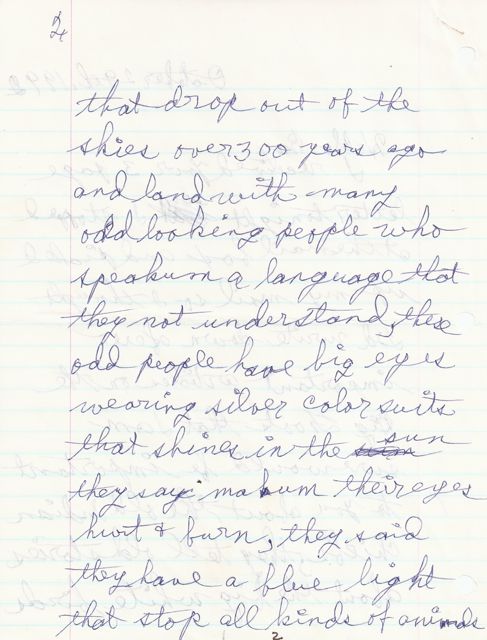 2
that drop out of the
skies over 300 years ago
and land with many
odd looking people who
speakum a language that
they not understand, these
odd people have big eyes
wearing silver color suits
that shines in the sun
they say makum their eyes
hurt & burn, they said
they have a blue light
that stop all kinds of animals
2